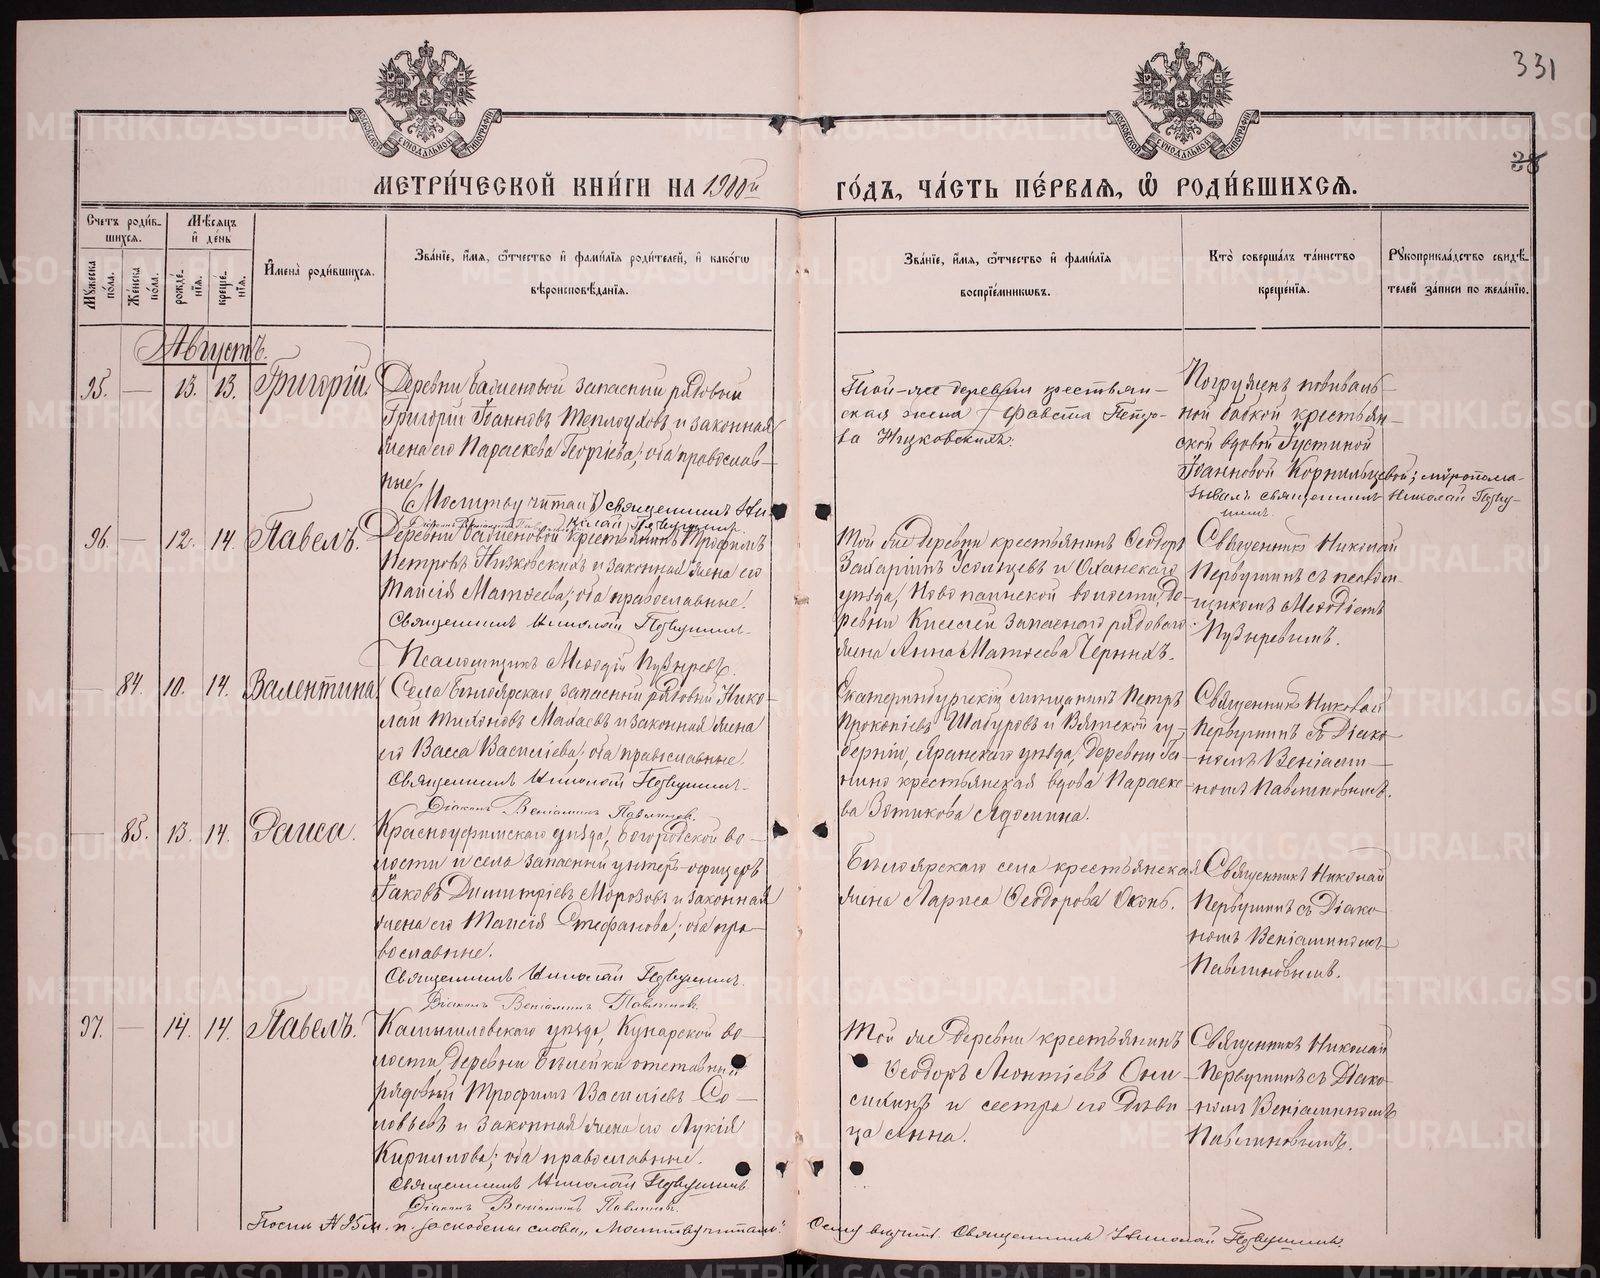 331
38
МЕТРИ́ЧЕСКОЙ КНИ́ГИ НА 1900й ГО́ДЪ, ЧА́СТЬ ПЕ́РВАЯ, Ѡ РОДИ́ВШИХСЯ.
Счетъ роди́вшихся.
Мꙋ́жеска по́ла.
Же́нска по́ла.
Мѣ́сяцъ и де́нь
рожде́нїя.
креще́нїя.
И́мена̀ роди́вшихся.
Зва́нїе, и́мя, о́тчество и фами́лїя роди́телей, и како́гѡ
вѣроисповѣ́данїя.
Зва́нїе, и́мя, о́тчество и фами́лїя
воспрїе́мникѡвъ.
Кто̀ соверша́лъ та́инство
креще́нїя.
Рꙋкоприкла́дство свидѣ́-
телей за́писи по жела́нїю.
Августъ.
95. — 13. 13. Григорій.
Деревни Бабиновой запасный рядовый
Григорій Іоанновъ Теплоуховъ и законная
жена его Параскева Георгіева; оба православ-
ные.
(Молитву читалъ) священникъ Ни-
колай Первушинъ.
Той-же деревни крестьян-
ская жена Фавста Петро-
ва Низковскихъ.
Погруженъ повиваль-
ной бабкой крестьян-
ской вдовой Іустиной
Іоанновой Корнильцевой; мѵропома-
зывалъ священникъ Николай Перву-
шинъ.
96. — 12. 14. Павелъ.
Деревни Бабиновой крестьянинъ Трофимъ
Петровъ Низковскихъ и законная жена его
Таисія Матѳеева; оба православные.
Священникъ Николай Первушинъ.
Псаломщикъ Меѳодій Пузыревъ.
Той же деревни крестьянинъ Ѳеодоръ
Захаринъ Усольцевъ и Оханскаго
уѣзда, Новопаинской волости, де-
ревни Киселей запаснаго рядового
жена Анна Матѳеева Черныхъ.
Священникъ Николай
Первушинъ съ псалом-
щикомъ Меѳодіемъ
Пузыревымъ.
84. 10. 14. Валентина
Села Бѣлоярскаго запасный рядовый Нико-
лай Тихоновъ Махаевъ и законная жена
его Васса Василіева; оба православные.
Священникъ Николай Первушинъ.
Діаконъ Веніаминъ Павлиновъ.
Екатеринбургскій мѣщанинъ Петръ
Прокопіевъ Шабуровъ и Вятской гу-
берніи, Яранскаго уѣзда, деревни
крестьянская вдова Параске-
ва Зотикова
Священникъ Николай
Первушинъ съ Діако-
номъ Веніами-
номъ Павлиновымъ.
— 85. 13. 14. Раиса.
Красноуфимскаго уѣзда, Богородской во-
лости и села запасный унтеръ-офицеръ
Іаковъ Димитріевъ Морозовъ и законная
жена его Таисія Стефанова; оба пра-
вославные.
Священникъ Николай Первушинъ.
Діаконъ Веніаминъ Павлиновъ.
Бѣлоярскаго села крестьянская
жена Лариса Ѳеодорова
Священникъ Николай
Первушинъ съ Діако-
номъ Веніаминомъ
Павлиновымъ.
97. — 14. 14. Павелъ.
Камышловскаго уѣзда, Кунарской во-
лости, деревни Бѣлейки отставный
рядовый Трофимъ Василіевъ Со-
ловьевъ и законная жена его Лукія
Кириллова; оба православные.
Священникъ Николай Первушинъ.
Діаконъ Веніаминъ Павлиновъ.
Той же деревни крестьянинъ
Ѳеодоръ Леонтіевъ
и сестра его дѣви-
ца Анна.
Священникъ Николай
Первушинъ съ Діако-
номъ Веніаминомъ
Павлиновымъ.
Священникъ Николай Первушинъ.